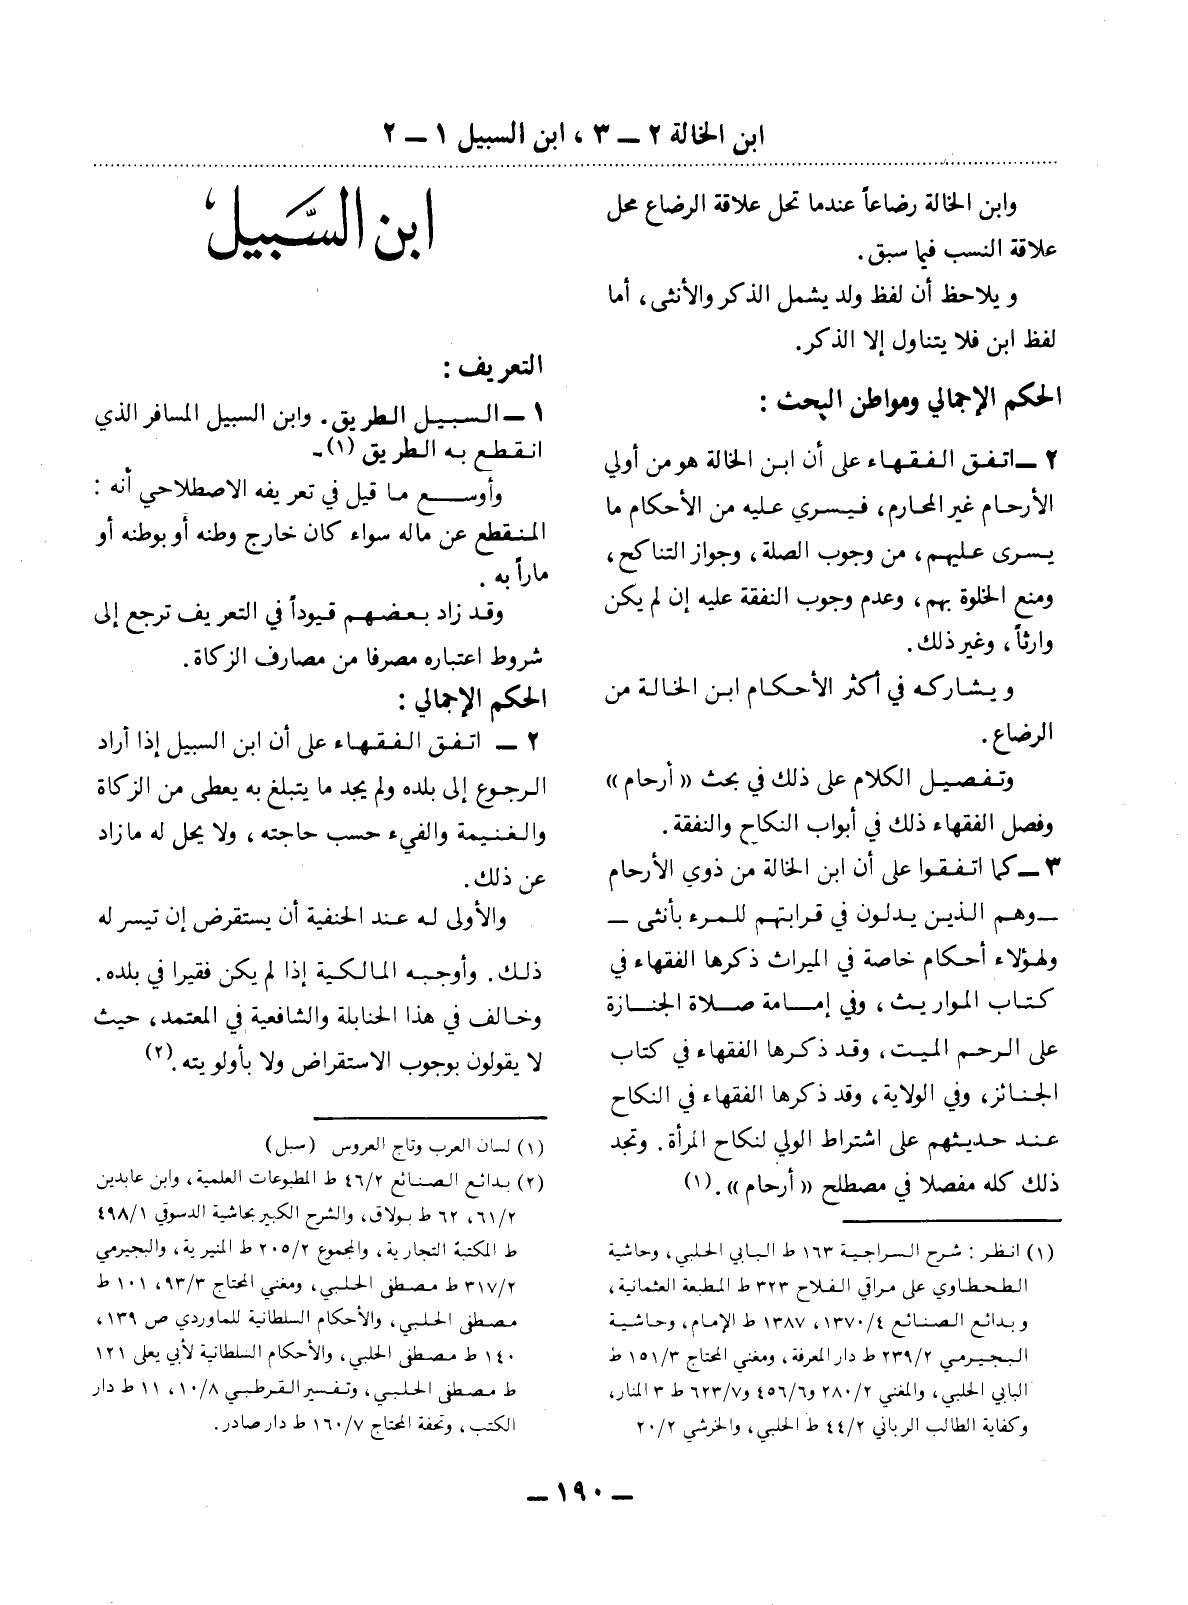 ابن الخالة ٢ ــ ٣ ، ابن السبيل ١ ــ ٢
وابن الخالة رضاعاً عندما تحل علاقة الرضاع محل
علاقة النسب فيما سبق.
ويلاحظ أن لفظ ولد يشمل الذكر والأنثى، أما
لفظ ابن فلا يتناول إلا الذكر.
الحكم الإجمالي ومواطن البحث :
٢ ــ اتفق الفقهاء على أن ابن الخالة هو من أولي
الأرحام غير المحارم، فيسري عليه من الأحكام ما
يسرى عليهم، من وجوب الصلة، وجواز التناكح،
ومنع الخلوة بهم، وعدم وجوب النفقة عليه إن لم يكن
وارثاً، وغير ذلك.
ويشاركه في أكثر الأحكام ابن الخالة من
الرضاع.
وتفصيل الكلام على ذلك في بحث «أرحام»
وفصل الفقهاء ذلك في أبواب النكاح والنفقة.
٣ ــ كما اتفقوا على أن ابن الخالة من ذوي الأرحام
ــ وهم الذين يدلون في قرابتهم للمرء بأنثى ــ
ولهؤلاء أحكام خاصة في الميراث ذكرها الفقهاء في
كتاب المواريث، وفي إمامة صلاة الجنازة
على الرحم الميت، وقد ذكرها الفقهاء في كتاب
الجنائز، وفي الولاية، وقد ذكرها الفقهاء في النكاح
عند حديثهم على اشتراط الولي لنكاح المرأة. وتجد
ذلك كله مفصلا في مصطلح «أرحام».(١)
(١) انظر : شرح السراجية ١٦٣ ط البابي الحلبي، وحاشية
الطحطاوي على مراقي الفلاح ٣٢٣ ط المطبعة العثمانية،
وبدائع الصنائع ١٣٧٠/٤، ١٣٨٧ ط الإمام، وحاشية
البجيرمي ٢٣٩/٢ ط دار المعرفة، ومغني المحتاج ١٥١/٣ ط
البابي الحلبي، والمغني ٢٨٠/٢ و٤٥٦/٦ و٦٢٣/٧ ط ٣ المنار،
وكفاية الطالب الرباني ٤٤/٢ ط الحلبي، والخرشي ٢٠/٢
ابن السَّبيل
التعريف :
١ ــ السبيل الطريق. وابن السبيل المسافر الذي
انقطع به الطريق (١)ـ
وأوسع ما قيل في تعريفه الاصطلاحي أنه :
المنقطع عن ماله سواء كان خارج وطنه أو بوطنه أو
ماراً به .
وقد زاد بعضهم قيوداً في التعريف ترجع إلى
شروط اعتباره مصرفا من مصارف الزكاة.
الحكم الإجمالي :
٢ ــ اتفق الفقهاء على أن ابن السبيل إذا أراد
الرجوع إلى بلده ولم يجد ما يتبلغ به يعطى من الزكاة
والغنيمة والفيء حسب حاجته، ولا يحل له ما زاد
عن ذلك.
والأولى له عند الحنفية أن يستقرض إن تيسر له
ذلك. وأوجبه المالكية إذا لم يكن فقيرا في بلده.
وخالف في هذا الحنابلة والشافعية في المعتمد، حيث
لا يقولون بوجوب الاستقراض ولا بأولويته.(٢)
(١) لسان العرب وتاج العروس (سبل)
(٢) بدائع الصنائع ٤٦/٢ ط المطبوعات العلمية، وابن عابدين
٦١/٢، ٦٢ ط بولاق، والشرح الكبير بحاشية الدسوقي ٤٩٨/١
ط المكتبة التجارية، والمجموع ٢٠٥/٢ ط المنيرية، والبجيرمي
٣١٧/٢ ط مصطفى الحلبي، ومغني المحتاج ٩٣/٣، ١٠١ ط
مصطفى الحلبي، والأحكام السلطانية للماوردي ص ١٣٩،
١٤٠ ط مصطفى الحلبي، والأحكام السلطانية لأبي يعلى ١٢١
ط مصطفى الحلبي، وتفسير القرطبي ١٠/٨، ١١ ط دار
الكتب، وتحفة المحتاج ١٦٠/٧ ط دار صادر.
ــ ١٩٠ ــ